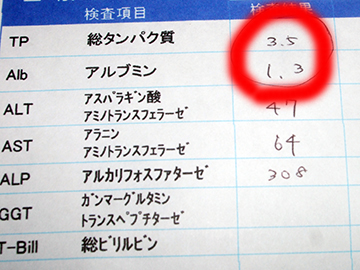 検査項目
検査結果
TP 総タンパク質 3.5
Alb アルブミン 1.3
ALT アスパラギン酸 アミノトランスフェラーゼ 47
AST アラニン アミノトランスフェラーゼ 64
ALP アルカリフォスファターゼ 308
GGT ガンマーグルタミン トランスペプチターゼ
T-Bill 総ビリルビン